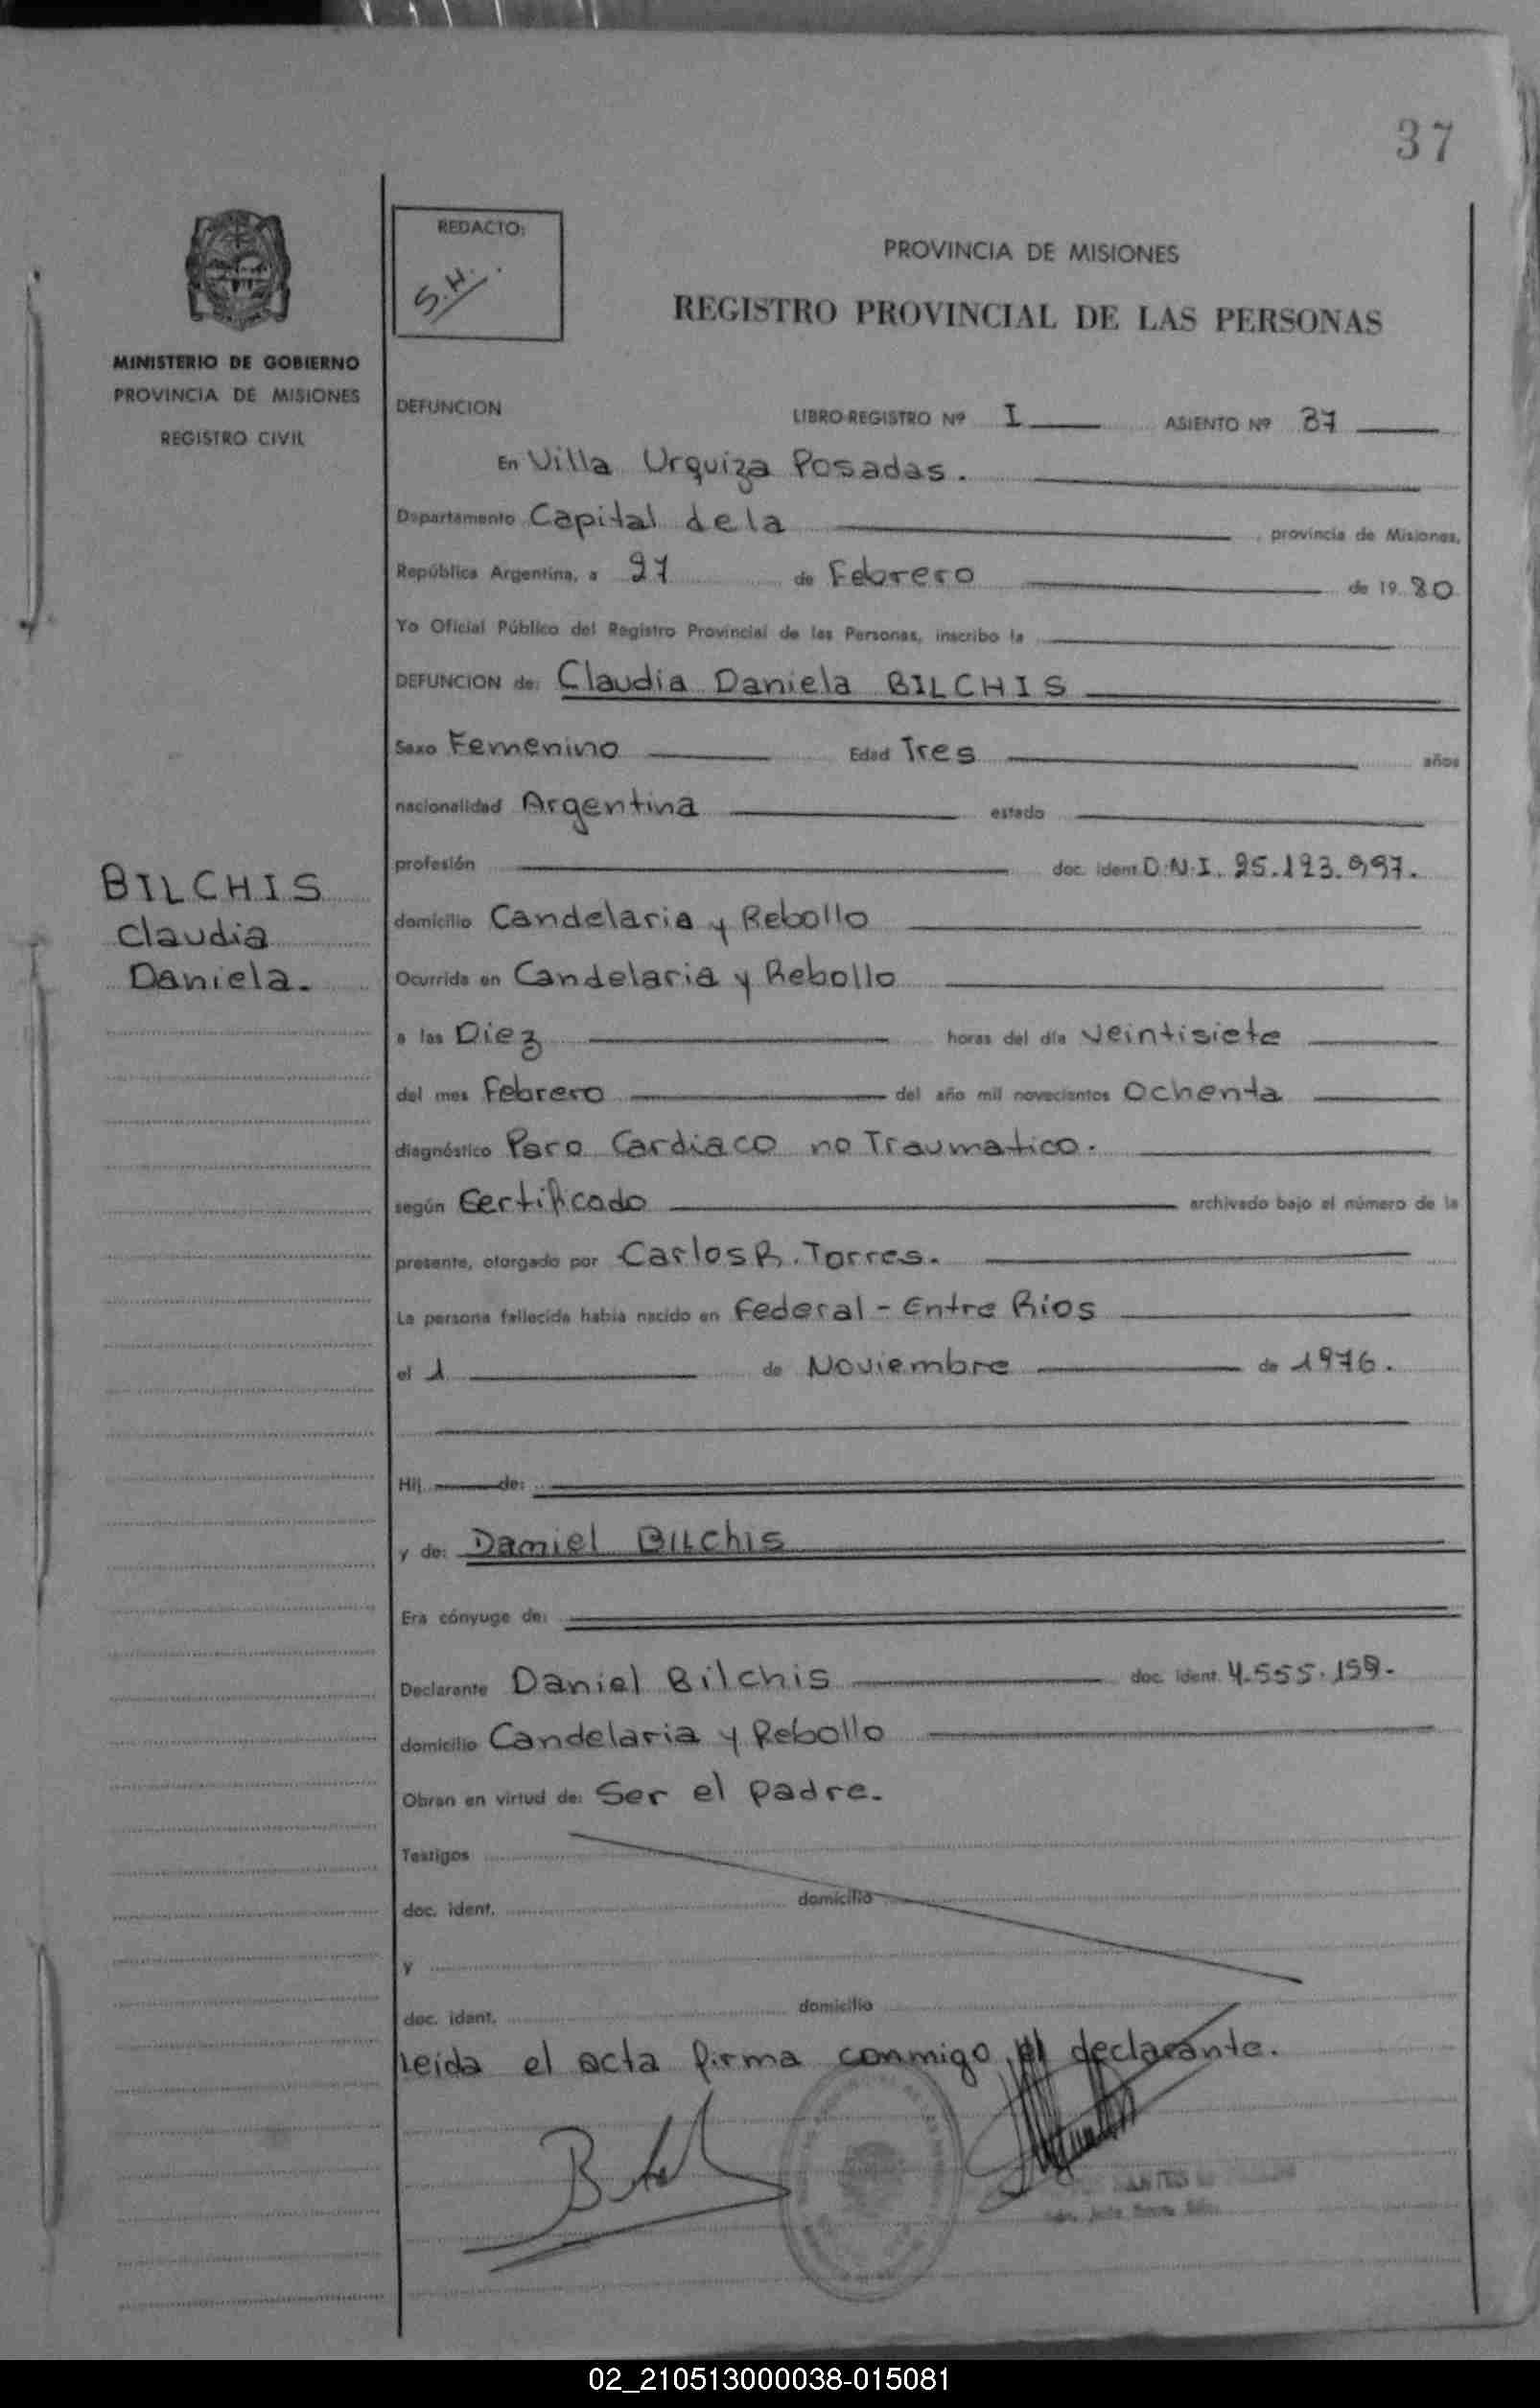 37
REDACTO:
S.H.
PROVINCIA DE MISIONES
REGISTRO PROVINCIAL DE LAS PERSONAS
MINISTERIO DE GOBIERNO
PROVINCIA DE MISIONES
REGISTRO CIVIL
DEFUNCION LIBRO-REGISTRO Nº I ASIENTO Nº 37
En Villa Urquiza Posadas.
Departamento Capital de la , provincia de Misiones,
República Argentina, a 27 de Febrero de 19 80
Yo Oficial Público del Registro Provincial de las Personas, inscribo la
DEFUNCION de: Claudia Daniela BILCHIS
Sexo Femenino Edad Tres años
nacionalidad Argentina estado
profesión doc. ident. D.N.I. 25.123.997.
BILCHIS
Claudia
Daniela.
domicilio Candelaria y Rebollo
Ocurrida en Candelaria y Rebollo
a las Diez horas del día veintisiete
del mes Febrero del año mil novecientos Ochenta
diagnóstico Paro Cardiaco no Traumatico.
según Certificado archivado bajo el número de la
presente, otorgado por Carlos R. Torres.
La persona fallecida había nacido en Federal - Entre Rios
el 1 de Noviembre de 1976.
Hij de:
y de: Daniel Bilchis
Era cónyuge de:
Declarante Daniel Bilchis doc. ident. 4.555.159.
domicilio Candelaria y Rebollo
Obran en virtud de: Ser el padre.
Testigos
doc. ident. domicilio
y
doc. ident. domicilio
Leida el acta firma conmigo el declarante.
02_210513000038-015081